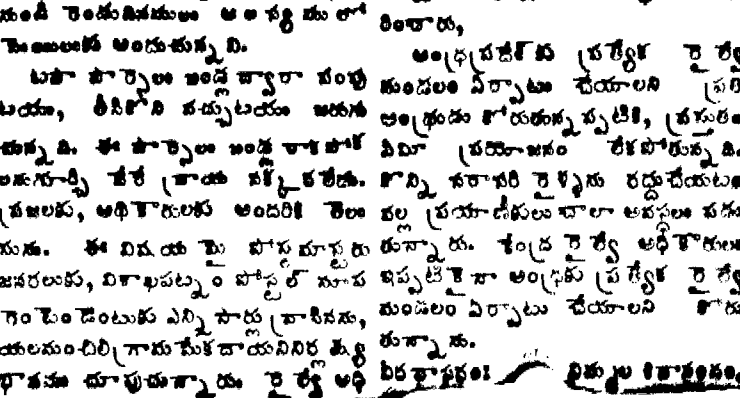 నుంచి రెండుదినములు ఆలస్యములో
మెయిలుకు అందుచున్నవి.
టపా పార్సెలు బండ్ల ద్వారా పంపు
టయు, తీసికొని వచ్చుటయు జరుగు
చున్నది. ఈ పార్సెలు బండ్ల రాకపోక
లనుగూర్చి వేరే వ్రాయ నక్కర లేదు.
ప్రజలకు, అధికారులకు అందరికి తెలు
నును. ఈ విషయమై పోస్టుమాస్టరు
జనరలుకు, విశాఖపట్నం పోస్టల్ సూప
రెంటెండెంటుకు ఎన్ని సార్లు వ్రాసినను,
యలమంచిలి గ్రామమేక దాయనినిర్ల
చూపుచున్నారు. రైల్వే అధి
రించారు,
ఆంధ్రప్రదేశ్‌కు ప్రత్యేక రైల్వే
మండలం ఏర్పాటు చేయాలని ప్రతి
ఆంధ్రుడు కోరుతున్నప్పటికి, ప్రస్తుతం
ఏమీ ప్రయోజనం లేకపోతున్నది.
కొన్ని సరాసరి రైళ్ళను రద్దుచేయటం
వల్ల ప్రయాణీకులు చాలా అవస్థలు పడు
తున్నారు. కేంద్ర రైల్వే అధికారులు
ఇప్పటికైనా ఆంధ్రకు ప్రత్యేక రైల్వే
మండలం ఏర్పాటు చేయాలని కోరు
తున్నాను.
వీరఘాస్టరం!